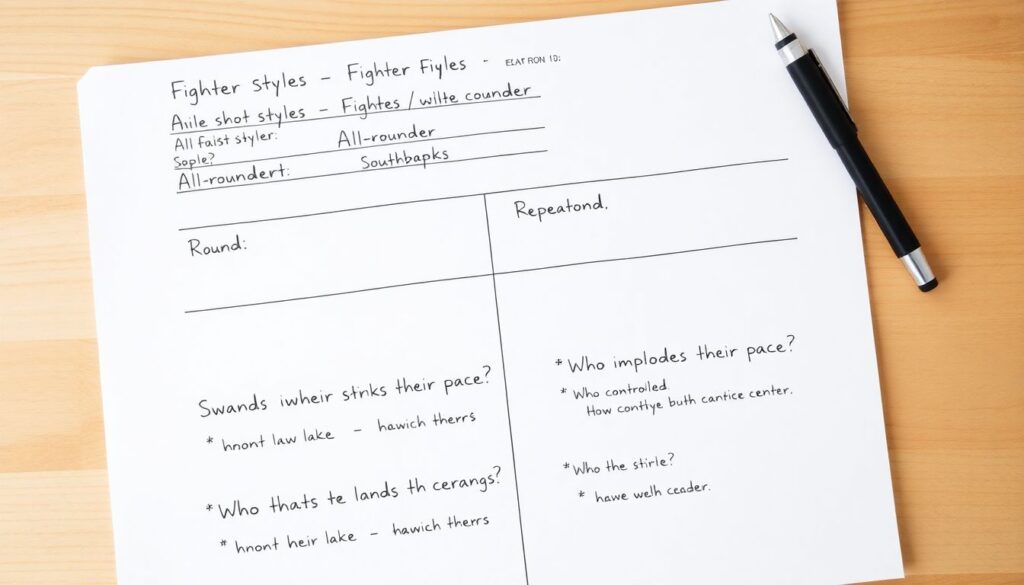 Fighter styles – Fighter Fiyles - ELAT RON 10:
Aile shot styles – Fightes / wilte counder
All faist styler: All-rounder
Sople?
All-roundert: Southbapks
Round:
Repeatond.
Swands iwheir stinks their pace?
* hnont law lake – hawich therrs
* Who thats te lands th cerangs?
* hnont heir lake – hawich therrs
* Who implodes their pace?
* Who controlled.
How contlye buth cantice center.
* Who the stirle?
* hawe welh ceader.